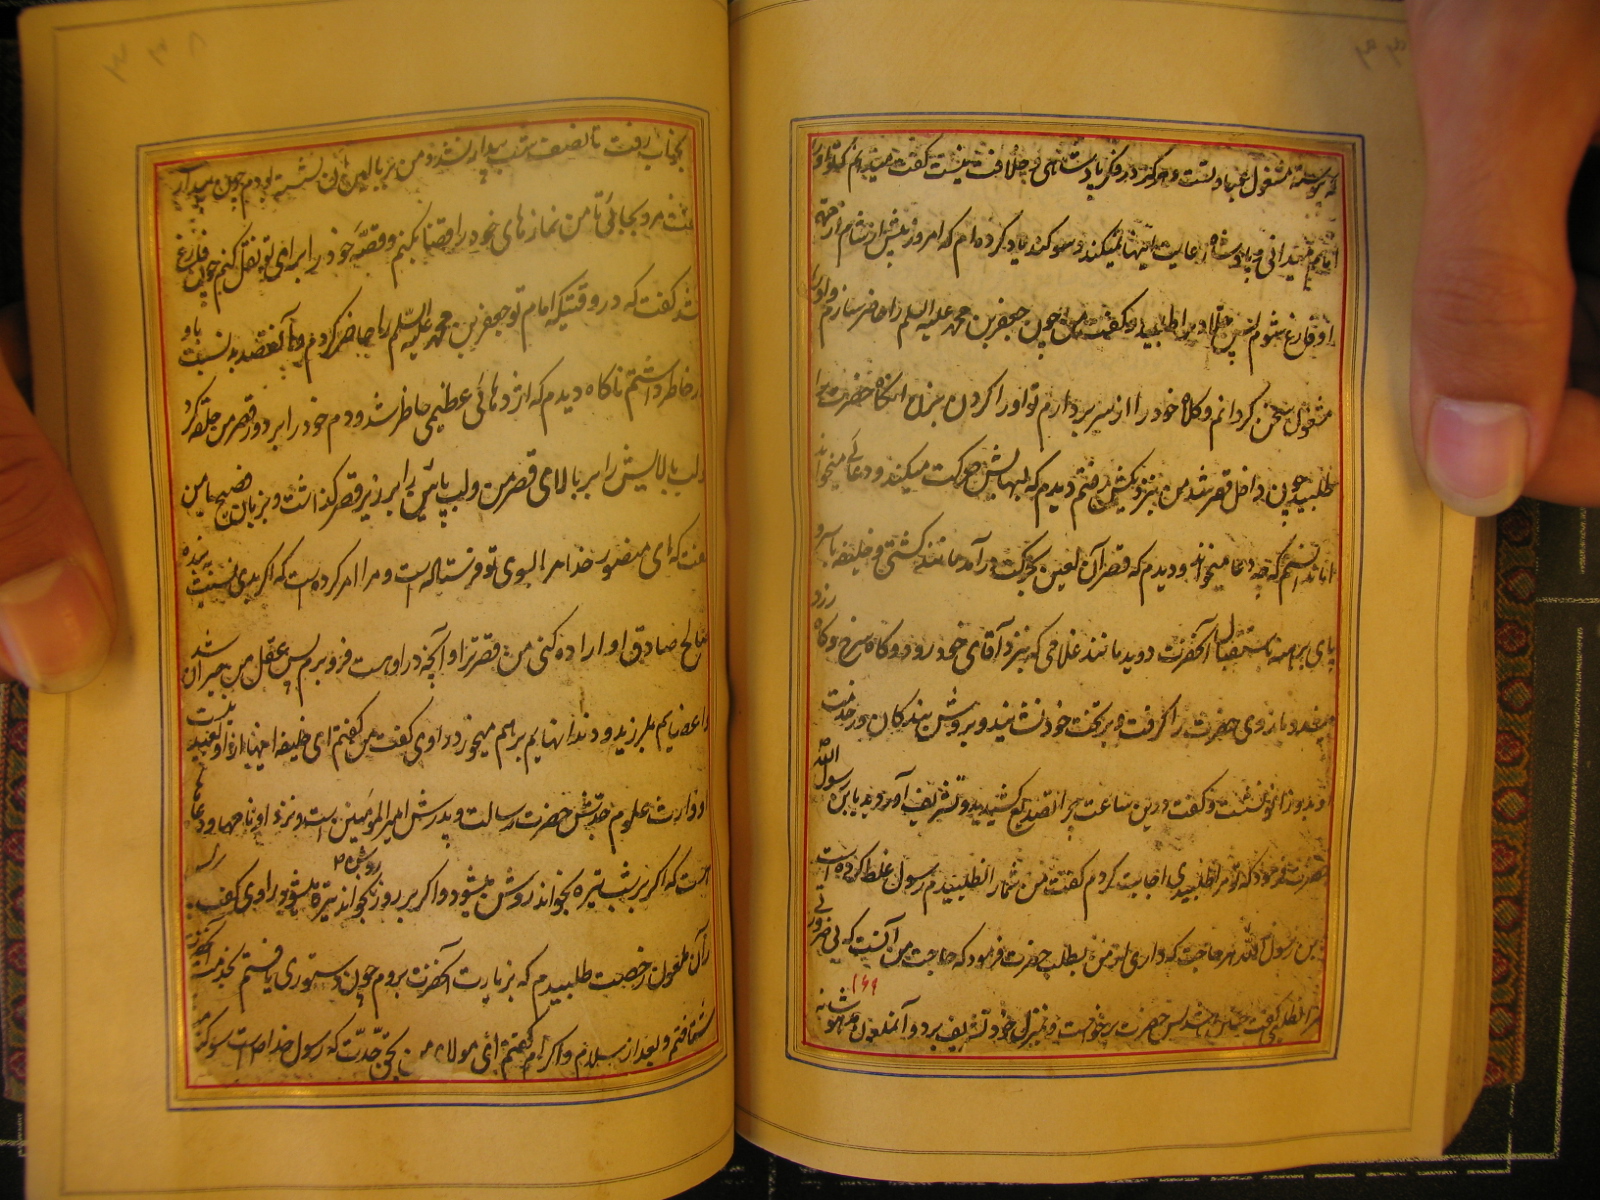 که پیوسته مشغول عبادتست و هرگز در فکر پادشاهی و خلافت نیست گفت میدانم که تو او را
امام میدانی و پادشاه رعایت اینها نمیکند و سوگند یاد کرده‌ام که امروز پیش از شام از مهم
او فارغ شوم پس جلاد را طلبید و گفت من چون جعفر بن محمد علیه السلم را حاضر سازم و او را
مشغول سخن گردانم و کلاه خود را از سر بردارم تو او را گردن بزن انگاه حضرت را
طلبید چون داخل قصر شد من بنزدیکش رفتم دیدم که لبهایش حرکت میکند و دعائی میخواند
اما ندانستم که چه دعا میخواند و دیدم که قصر آن لعین بحرکت درآمد مانند کشتی و خلیفه با سر و
پای برهنه باستقبال آنحضرت دوید مانند غلامی که بنزد آقای خود رود و گاه سرخ و گاه زرد
میشد و بازوی حضرت را گرفت و بر تخت خود نشانید و بروش بندگان در خدمت
او بدوزانو نشست و گفت درین ساعت چرا تصدیع کشیدید و تشریف آوردید یابن رسول الله
حضرت فرمود که تو مرا طلبیدی اجابت کردم گفت من شما را نطلبیدم رسول غلط کرده است
یابن رسول الله هر حاجت که داری از من بطلب حضرت فرمود که حاجت من آنست که بی ضرورتی
مرا نطلبی گفت چنین باشد پس حضرت برخواست و بمنزل خود تشریف برد و آنملعول مدهوشانه
۱۶۹
بخواب رفت تا نصف شب بیدار نشد و من بر بالین او نشسته بودم چون بیدار
گفت مرو بجائی تا من نمازهای خود را قضا بکنم و قصه خود را برای تو نقل کنم چون فارغ
شد گفت که در وقتیکه امام تو جعفر بن محمد علیه السلم را حاضر کردم و آنقصد بد نسبت باو
در خاطر داشتم ناگاه دیدم که اژدهائی عظیمی حاظر شد و دم خود را بر دور قصر من حلقه کرد
و لب بالایش را بر بالای قصر من و لب پائین را بر زیر قصر گذاشت و بزبان فصیح با من
گفت که ای منصور خدا مرا بسوی تو فرستاده است و مرا امر کرده است که اگر بدی نسبت به بنده
صالح صادق او اراده کنی من قصر ترا و آنچه در اوست فرو برم پس عقل من حیران شد
و اعضایم بلرزید و دندانهایم بر هم میخورد راوی گفت من گفتم ای خلیفه اینها از او بعید نیست
او وارث علوم جدش حضرت رسالت و پدرش امیرالمؤمنین است و نزد او نامها و دعاها
است که اگر بر شب تیره بخواند روشن میشود و اگر بر روز بخواند تیره میشود راوی گفت
روشن
از آن ملعون رخصت طلبیدم که بزیارت آنحضرت بروم چون دستوری یافتم بخدمت آنحضرت
شتافتم و بعد از سلام و اکرام گفتم ای مولای من بحق جدت که رسول خداست سوگند